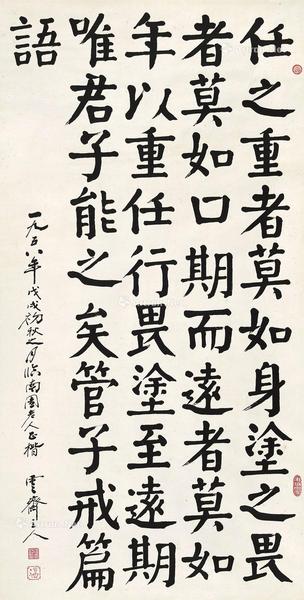 任之重者莫如身塗之畏
者莫如口期而遠者莫如
年以重任行畏塗至遠期
唯君子能之矣管子戒篇
語
一九五八年戊戌初秋之月臨南園老人正楷
雲齋人